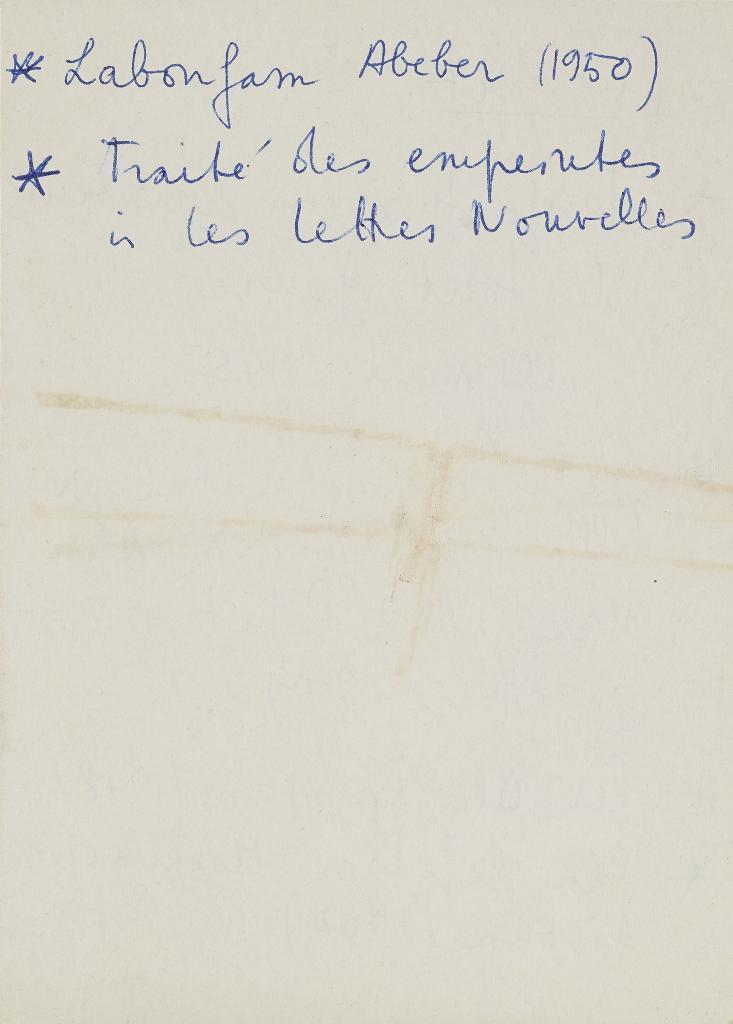 * Labonfam Abeber (1950)
* Traité des empreintes
in les lettres Nouvelles